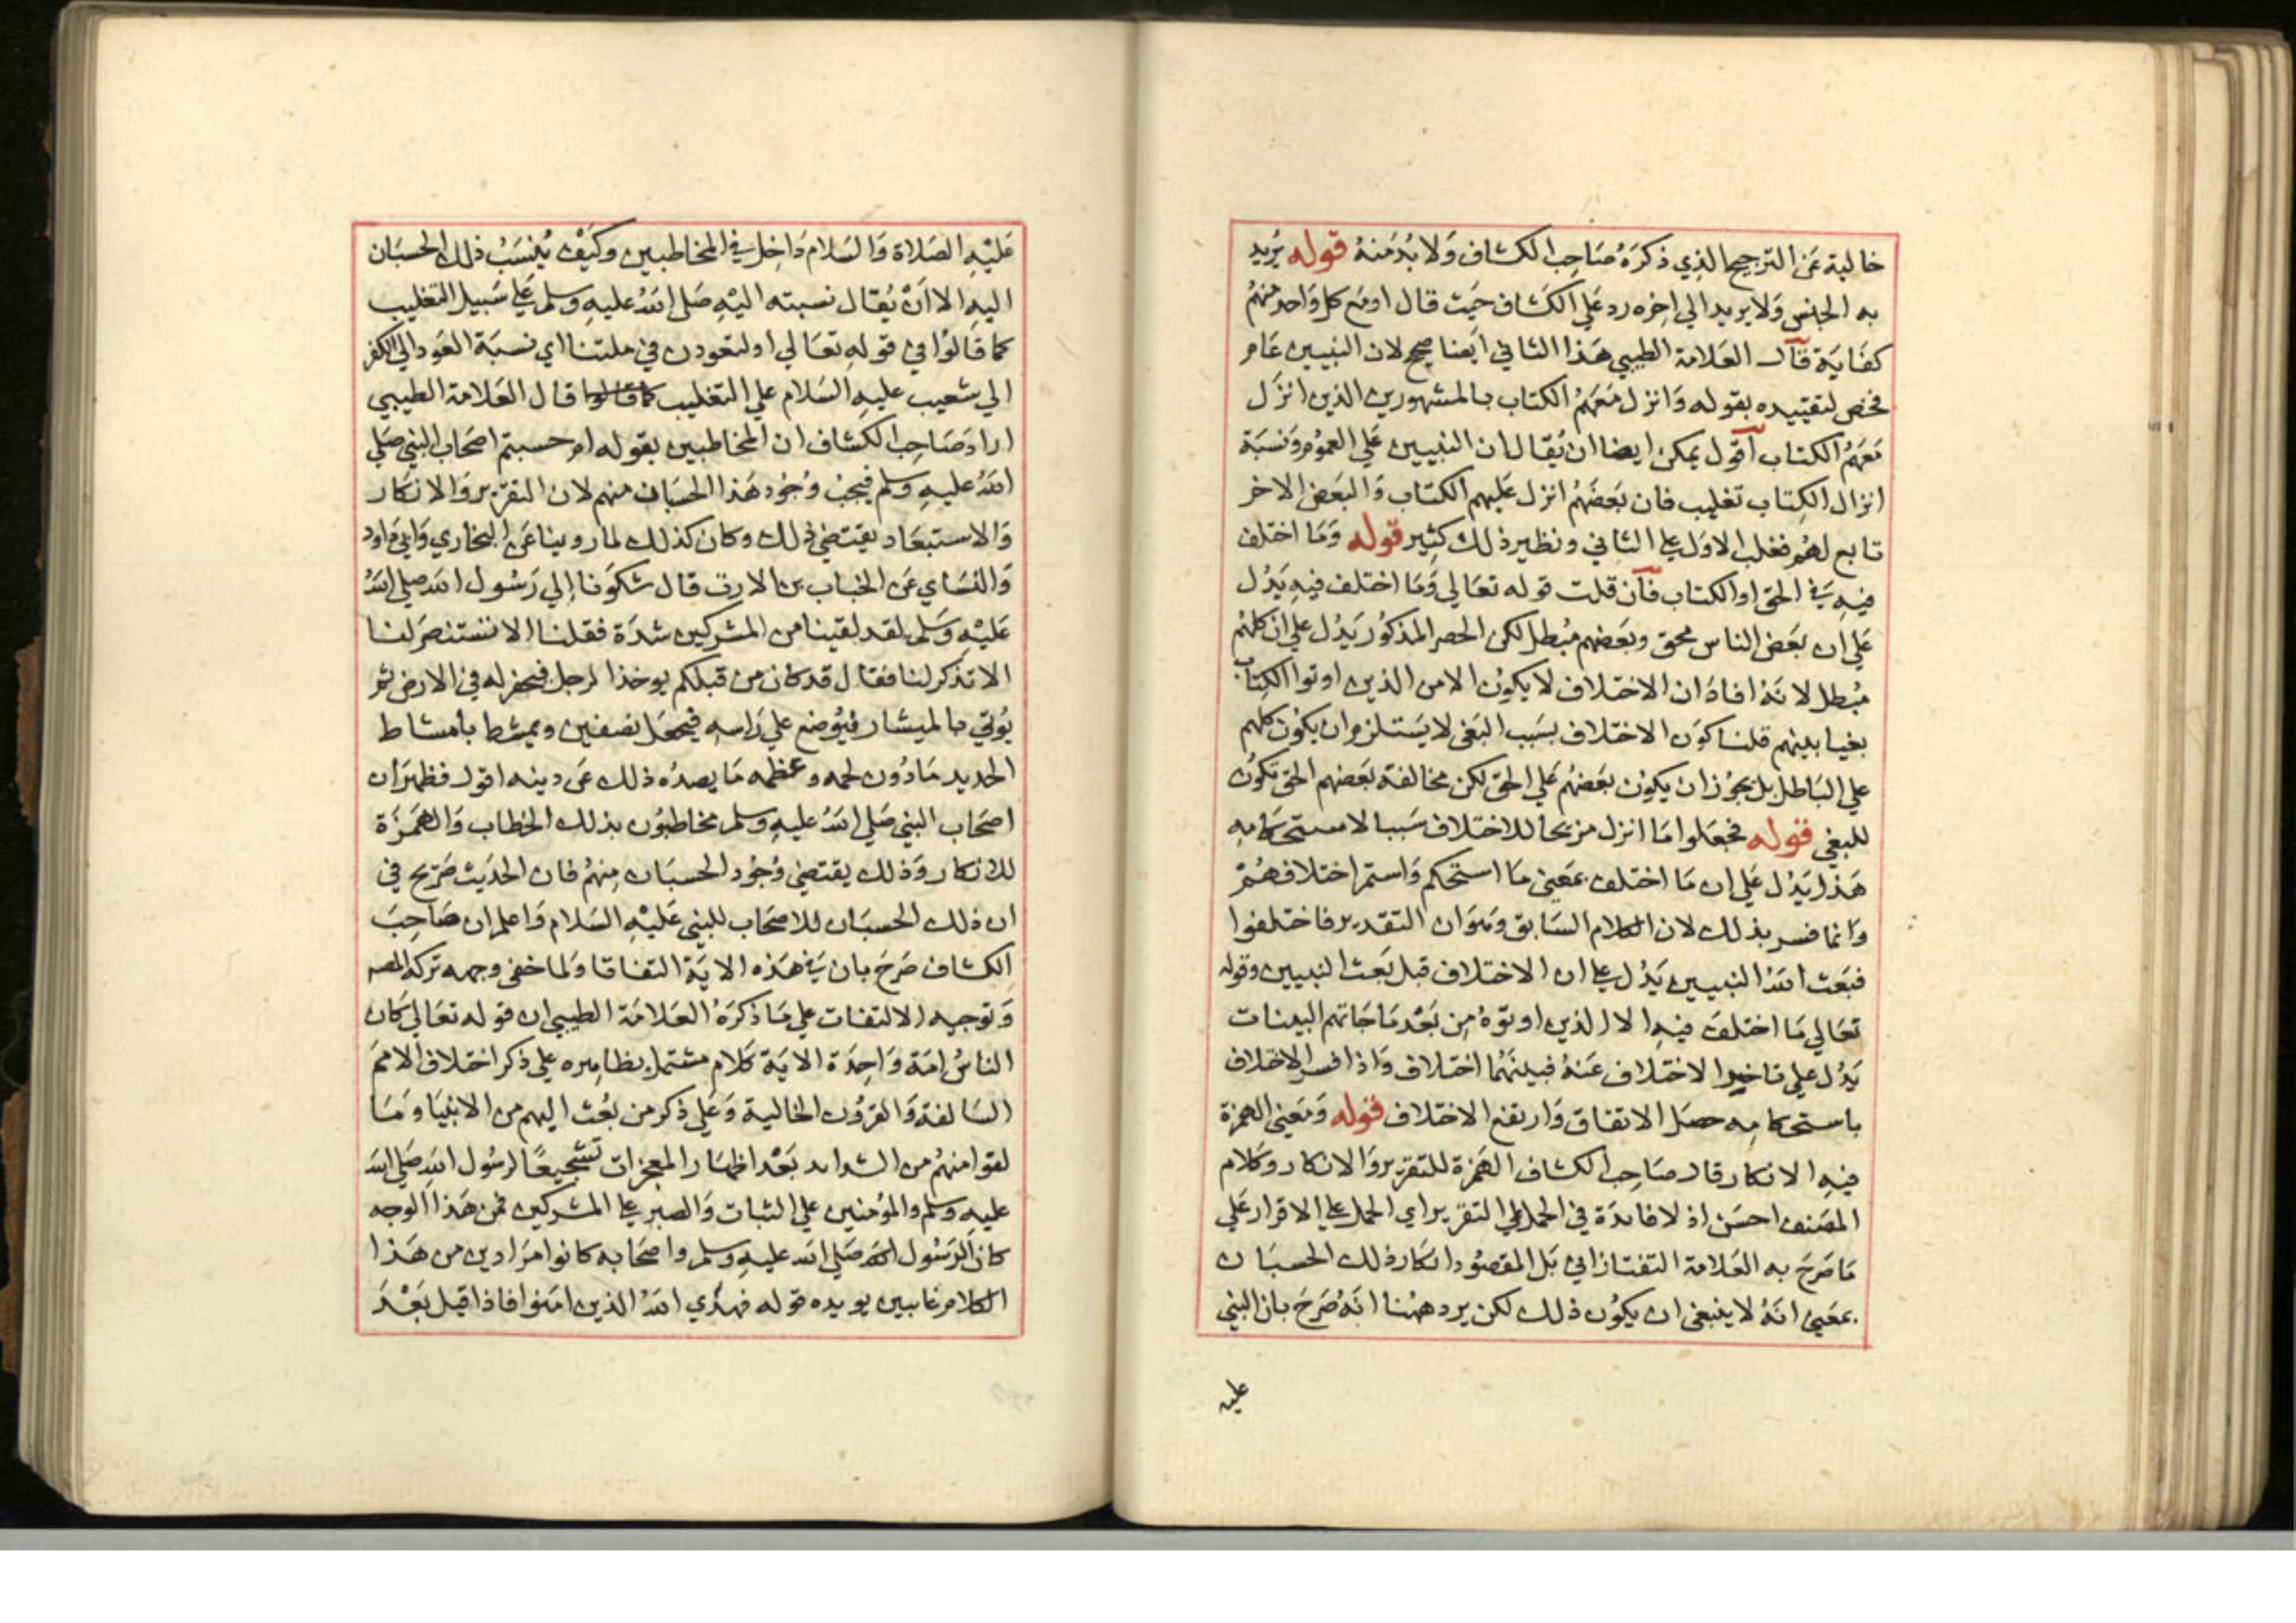 خالية عن الترجيح الذي ذكره صاحب الكشاف ولا بد منه قوله يريد
به الجنس ولا يريد الي اخره رد علي الكشاف حيث قال او مع كل واحد منهم
كفاية قال العلامة الطيبي هذا الثاني ايضا صحيح لان النبيين عام
فخص لتقييده بقوله وانزل معهم الكتاب بالمشهورين الذين انزل
معهم الكتاب اقول يمكن ايضا ان يقال ان النبيين علي العموم ونسبة
انزال الكتاب تغليب فان بعضهم انزل عليهم الكتاب والبعض الاخر
تابع لهم فغلب الاول علي الثاني ونظير ذلك كثير قوله وما اختلف
فيه في الحق او الكتاب فان قلت قوله تعالي وما اختلف فيه يدل
علي ان بعض الناس محق وبعضهم مبطل لكن الحصر المذكور يدل علي ان كلهم
مبطل لانه افاد ان الاختلاف لا يكون الا من الذين اوتوا الكتاب
بغيا بينهم قلنا كون الاختلاف بسبب البغي لا يستلزم ان يكون كلهم
علي الباطل بل يجوز ان يكون بعضهم علي الحق لكن مخالفة بعضهم الحق تكون
للبغي قوله فجعلوا ما انزل مزيحا للاختلاف سببا لاستحكامه
هذا يدل علي ان ما اختلف بمعني ما استحكم واستمر اختلافهم
وانما فسر بذلك لان الكلام السابق وهو ان التقدير فاختلفوا
فبعث الله النبيين يدل علي ان الاختلاف قبل بعث النبيين وقوله
تعالي ما اختلف فيه الا الذين اوتوه من بعد ما جاتهم البينات
يدل علي تاخير الاختلاف عنه فبينهما اختلاف واذا فسر الاختلاف
باستحكامه حصل الاتفاق وارتفع الاختلاف قوله ومعني الهمزة
فيه الانكار قال صاحب الكشاف الهمزة للتقرير والانكار وكلام
المصنف احسن اذ لا فايدة في الحمل علي التقرير اي الحمل علي الاقرار علي
ما صرح به العلامة التفتازاني بل المقصود انكار ذلك الحسبان
بمعني انه لا ينبغي ان يكون ذلك لكن يرد ههنا انه صرح بان النبي
عليه
عليه الصلاة والسلام داخل في المخاطبين وكيف ينسب ذلك الحسبان
اليه الا ان يقال نسبته اليه صلي الله عليه وسلم علي سبيل التغليب
كما قالوا في قوله تعالي او لتعودن في ملتنا اي نسبة العود الي الكفر
الي شعيب عليه السلام علي التغليب كما قالوا قال العلامة الطيبي
اراد صاحب الكشاف ان المخاطبين بقوله ام حسبتم اصحاب النبي صلي
الله عليه وسلم فيجب وجود هذا الحسبان منهم لان التقرير والانكار
والاستبعاد يقتضي ذلك وكان كذلك لما روينا عن البخاري وابي داود
والنساي عن الخباب بن الارت قال شكونا الي رسول الله صلي الله
عليه وسلم لقد لقينا من المشركين شدة فقلنا الا تستنصر لنا
الا تذكر لنا فقال قد كان من قبلكم يوخذ الرجل فيحفر له في الارض ثم
يوتي بالميشار فيوضع علي راسه فيجعل نصفين ويمشط بامشاط
الحديد ما دون لحمه وعظمه ما يصده ذلك عن دينه اقول فظهر ان
اصحاب النبي صلي الله عليه وسلم مخاطبون بذلك الخطاب والهمزة
للانكار وذلك يقتضي وجود الحسبان منهم فان الحديث صريح في
ان ذلك الحسبان للاصحاب للنبي عليه السلام واعلم ان صاحب
الكشاف صرح بان في هذه الاية التفاتا ولما خفي وجهه تركه المصه
وتوجيه الالتفات علي ما ذكره العلامة الطيبي ان قوله تعالي كان
الناس امة واحدة الاية كلام مشتمل بظاهره علي ذكر اختلاف الامم
السالفة والقرون الخالية وعلي ذكر من بعث اليهم من الانبيا وما
لقوا منهم من الشدايد بعد اظهار المعجزات تشجيعا لرسول الله صلي الله
عليه وسلم والمؤمنين علي الثبات والصبر علي المشركين فمن هذا الوجه
كان الرسول صلي الله عليه وسلم واصحابه كانوا مرادين من هذا
الكلام غايبين يويده قوله فهدي الله الذين امنوا فاذا قيل بعد